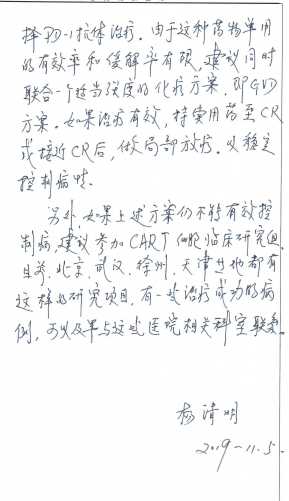 择PD-1抗体治疗。由于这种药物单用
的有效率和缓解率有限,建议同时
联合一个适当强度的化疗方案,即GVD
方案。如果治疗有效,持续用药至CR
或接近CR后,做局部放疗。以稳定
控制病情。
另外如果上述方案仍不能有效控
制病,建议参加CART细胞临床研究组
目前,北京,武汉,徐州,天津等地都有
这样的研究项目,有一些治疗成功的病
例,可以及早与这些医院相关科室联系。
杨清明
2019-11.5